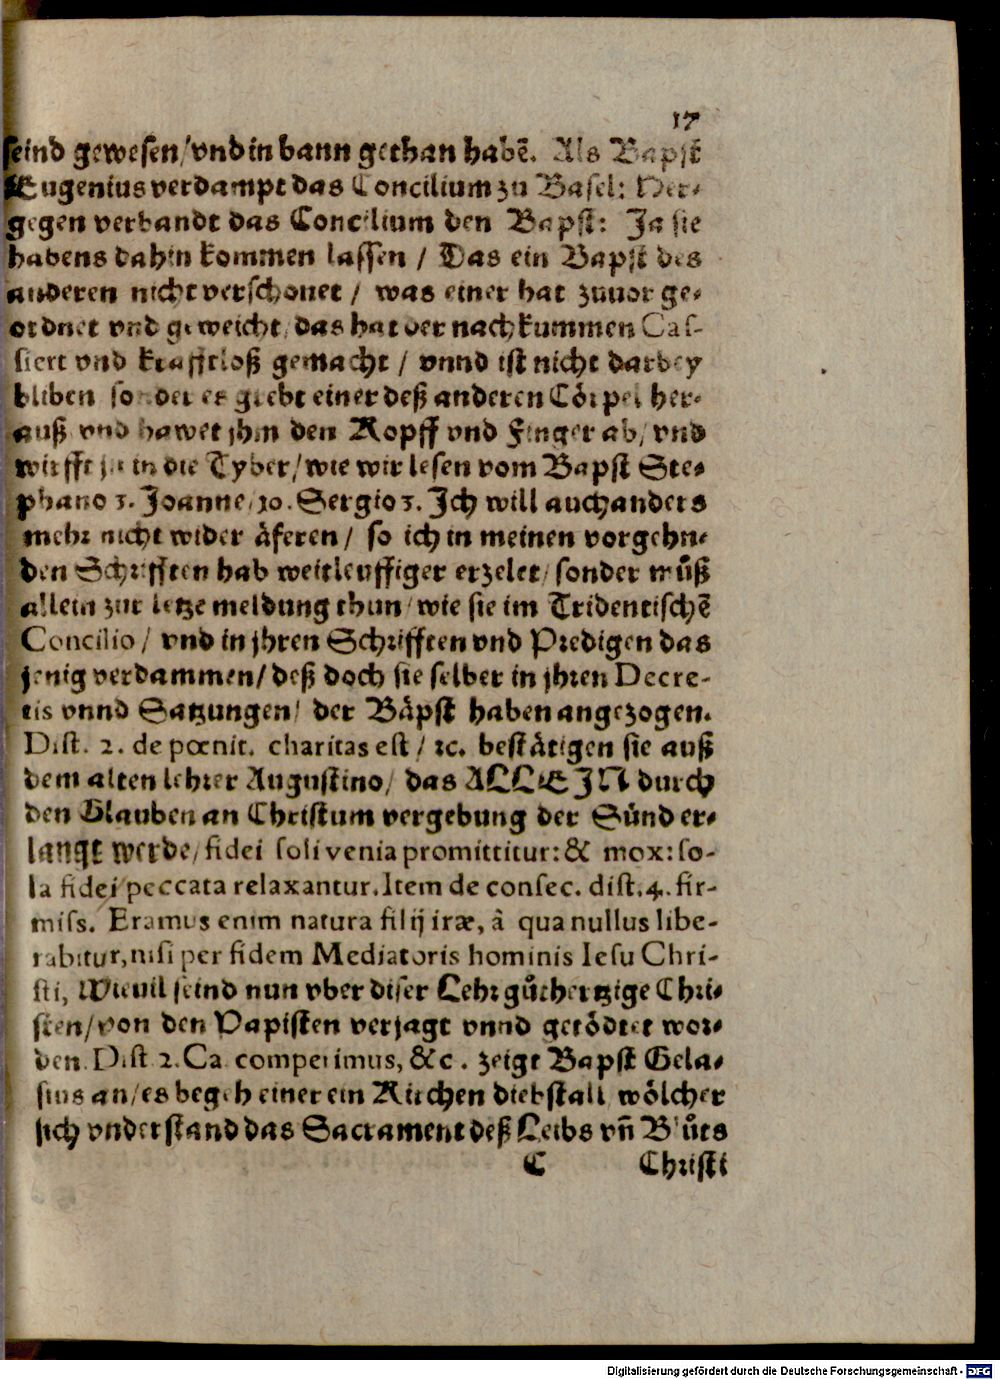 17
seind gewesen/vnd in bann gethan habē. Als Bapst
Eugenius verdampt das Concilium zu Basel: Her-
gegen verbandt das Concilium den Bapst: Ja sie
habens dahin kommen lassen / Das ein Bapst des
anderen nicht verschonet / was einer hat zuuor ge-
ordnet vnd geweicht/das hat der nachkummen Cas-
siert vnd krafftloß gemacht / vnnd ist nicht darbey
bliben sonder es grebt einer deß anderen Cörpel her-
auß vnd hawet jhm den Kopff vnd Finger ab/vnd
wirfft jn in die Tyber/wie wir lesen vom Bapst Ste-
phano 3. Joanne/10. Sergio 3. Ich will auch anders
mehr nicht wider äferen / so ich in meinen vorgehn-
den Schrifften hab weitleuffiger erzelet/sonder můß
allein zur letze meldung thun/wie sie im Tridentischē
Concilio / vnd in jhren Schrifften vnd Predigen das
jenig verdammen/deß doch sie selber in jhren Decre-
tis vnnd Satzungen/ der Bäpst haben angezogen.
Dist. 2. de pœnit. charitas est / ꝛc. bestätigen sie auß
dem alten lehrer Augustino/ das ALLEIN durch
den Glauben an Christum vergebung der Sünd er-
langt werde/fidei soli venia promittitur: & mox: so-
la fidei peccata relaxantur. Item de consec. dist. 4. fir-
miss. Eramus enim natura filij iræ, à qua nullus libe-
rabitur, nisi per fidem Mediatoris hominis Iesu Chri-
sti, Wieuil seind nun vber diser Lehr gůthertzige Chri-
sten/von den Papisten verjagt vnnd getödtet wor-
den. Dist 2. Ca. comperimus, &c. zeigt Bapst Gela-
sius an/es begeh einer ein Kirchen diebstall wölcher
sich vnderstand das Sacrament deß Leibs vñ Blůts
C Christi
Digitalisierung gefördert durch die Deutsche Forschungsgemeinschaft - DFG